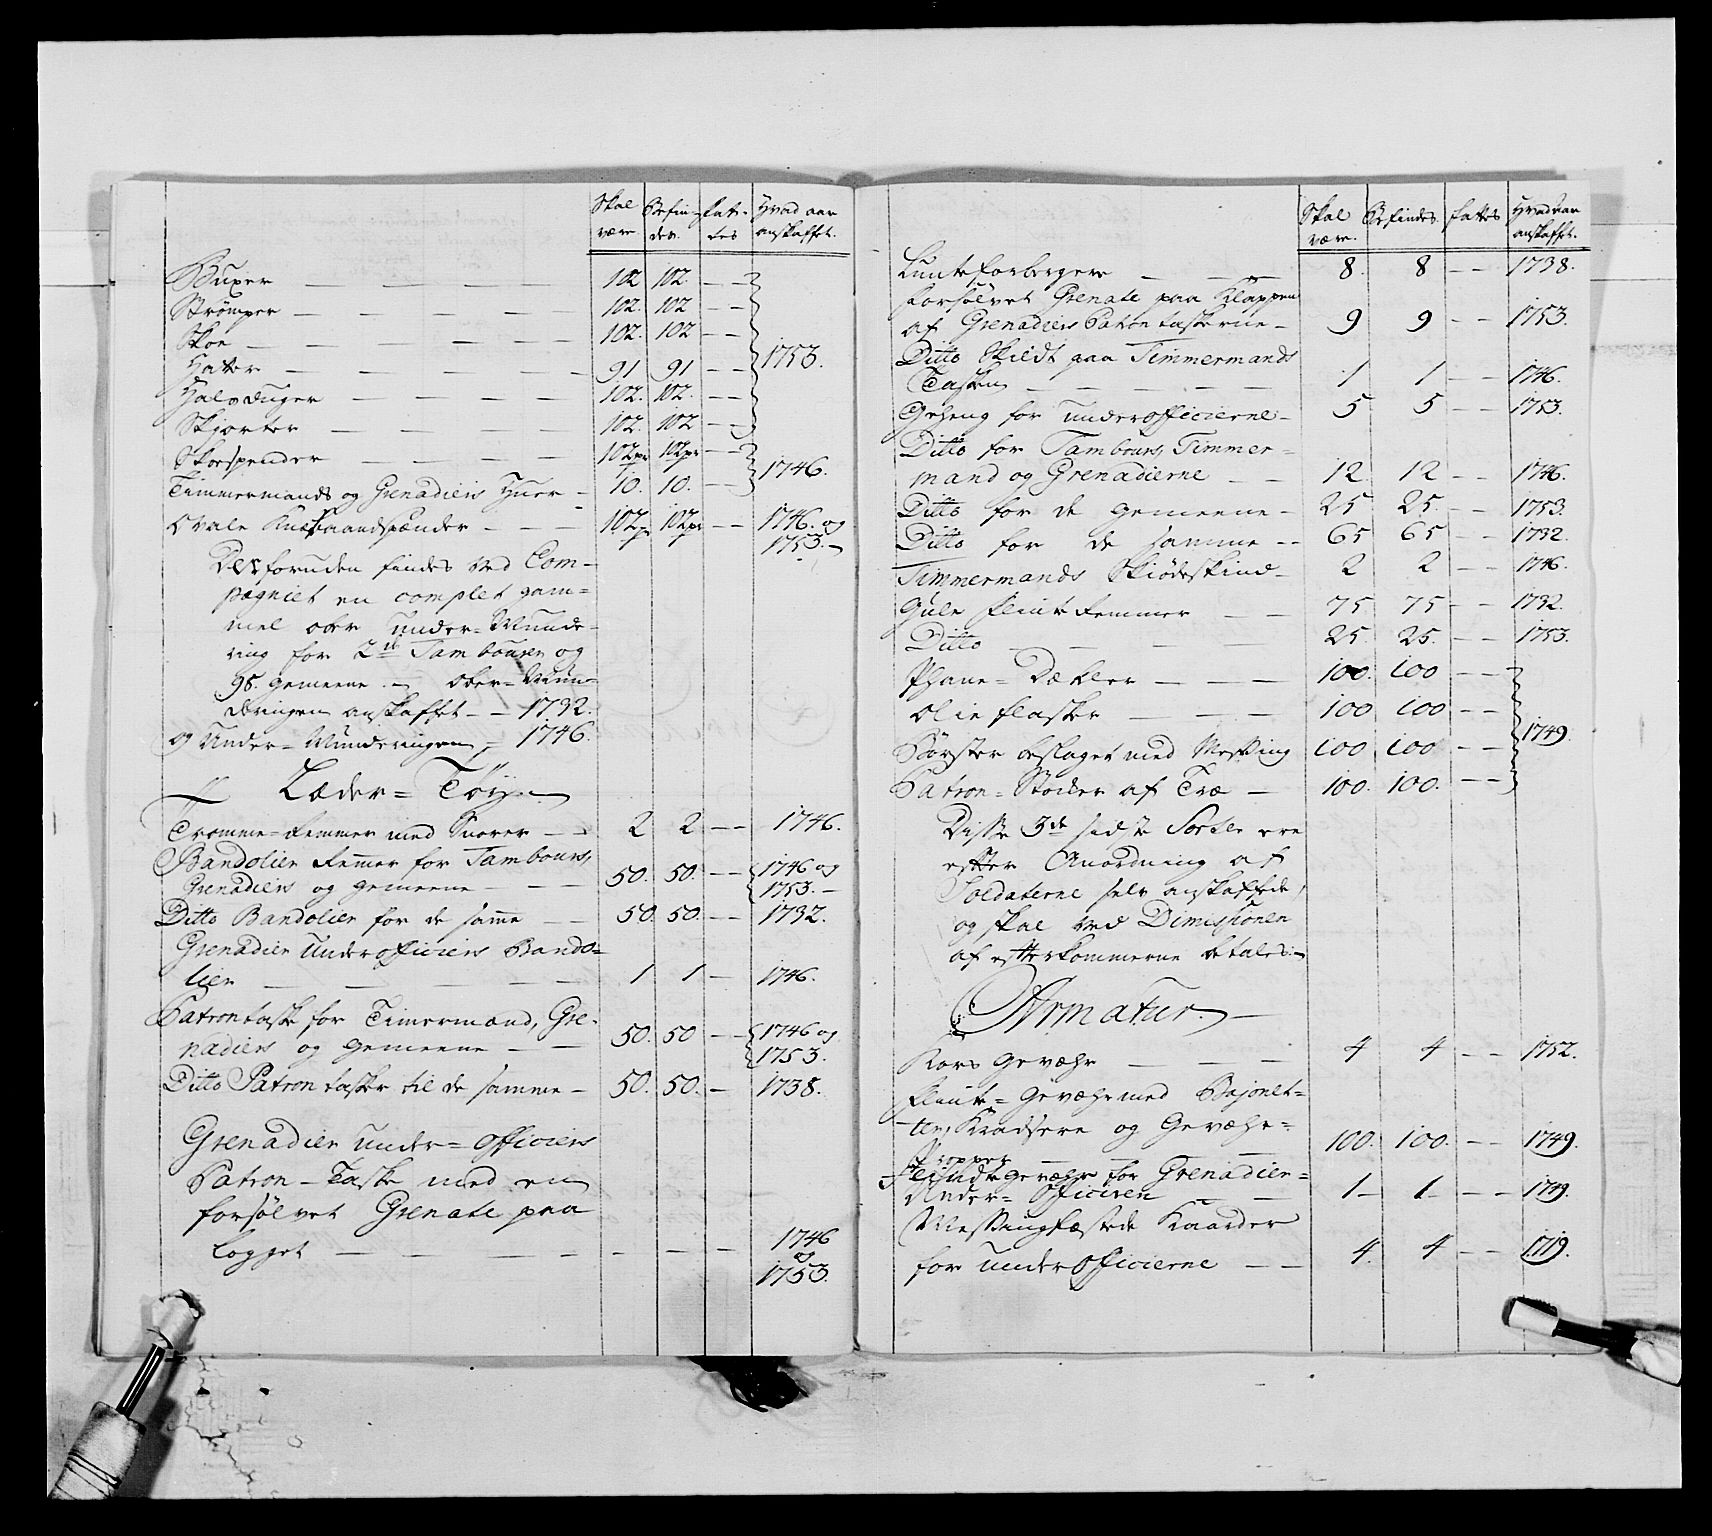 Skal Befin- fat- Hvad aar
være des. tes anskaffet.
Buxer — — — — 102 102. — —
Strömper — — — — 102. 102 — —
Skoe — — — — 102. 102 — —
Hatter — — — — 91 91 — — 1753.
Halsduger — — — — 102. 102. — —
Skjorter — — — — 102. 102 — —
Skoespender — — — — 102 pr 102 pr — —
Timmermands og Grenadiers Huer — 10. 10. — — 1746.
Ovale Knæbaandspænder — — — 102 pr 102 pr — — 1746. og
1753. —
Desforuden findes ved Com-
pagniet en complet gam-
mel ober under-Munde-
ring for 2de Tambourer og
98. gemeene. — Ober-Mun-
deringen anskaffet — 1732.
og Under-Munderingen — 1746.
Læder-Töy
Tromme-Remmer med Snorer — — 2 2 — — 1746.
Bandolier Remer for Tambours,
Grenadiers og gemeene — — — 50. 50. — — 1746 og
1753. —
Ditto Bandolier for de samme — 50. 50. — — 1732.
Grenadier Underofficiers Bando-
lier — — — — 1 1 — 1746.
Patrontaske for Timermand, Gre-
nadiers og gemeene — — 50. 50 — — 1746 og
1753.
Ditto Patrontasker til de samme — 50. 50. — 1738.
Grenadier under-Officiers
Patron-Taske med en
forsölvet Grenate paa
Logget — — — — — — — 1746
og
1753.
Skal Befindes fattes Hvad aar
være. anskaffet.
Lunteforbergere — — — 8. 8 — — 1738.
Forsölvet Grenate paa Klappen
af Grenadiers Patrontaskerne — 9 9 — — 1753.
Ditto Skildt paa Timmermands
Tasken — — — — 1 1 — — 1746.
Geheng for underofficierne — 5 5 — — 1753.
Ditto for Tambours, Timmer-
mand og Grenadierne — — 12 12 — — 1746.
Ditto for de gemeene — 25 25. — — 1753.
Ditto for de samme — — 65 65 — — 1732.
Timmermands Skiödeskind — 2 2 — — 1746.
Gule flint Remmer — — 75 75 — — 1732.
Ditto — — — 25. 25. — — 1753.
Phane-Dækler — — — 100. 100 — —
Olie flasker — — — 100 100 — —
Börster beslaget med Messing 100 100 — — 1749.
Patron-Stocker af Træ — 100. 100. — —
Disse 3de sidste Sorter ere
efter Anordning af
Soldaterne selv anskaffede,
og skal ved Dimissionen
af efterkommerne betales. —
Armatur. —
Kors Gevæhr — — — 4 4 — — 1752.
Flint-Gevæhr med Bajonet-
ter, Kradsere og Gevæhr-
Propper — — — 100. 100. — — 1749.
Flindtgevæhr for Grenadier-
Under-Officiren — — 1 — 1 — — 1749.
Messingfæstede Kaarder
for underofficierne — — 4. 4 — — 1719.